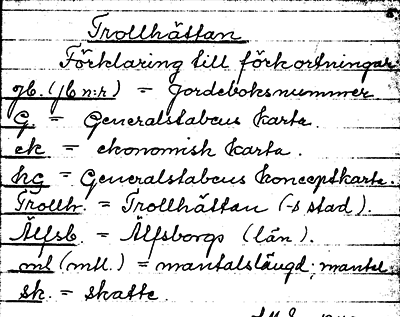 Trollhättan
Förklaring till förkortningar
jb. (jb n:r) = Jordeboksnummer
G. = Generalstabens karta.
ek = ekonomisk karta.
kg = Generalstabens konceptkarta.
Trollh. = Trollhättan (-s stad).
Älfsb. = Älfsborgs (län).
ml (mtl.) = mantalslängd; mantal
sk. = skatte.